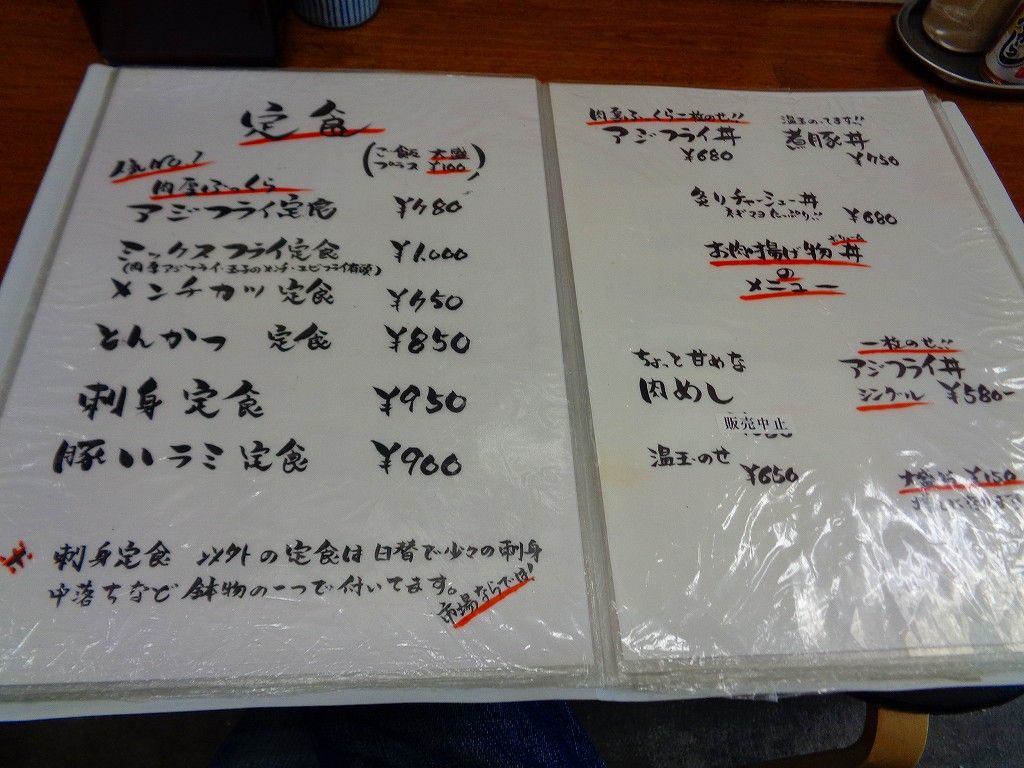 定食
(ご飯 大盛
プラス ¥100)
人気No.1
肉厚ふっくら
アジフライ定食 ¥780
ミックスフライ定食 ¥1.000
(肉厚アジフライ・玉子のメンチ・エビフライ有頭)
メンチカツ 定食 ¥750
とんかつ 定食 ¥850
刺身 定食 ¥950
豚ハラミ定食 ¥900
刺身定食 以外の定食は日替で少々の刺身
中落ちなど 鉢物の一つで付いてます。
市場ならでは!
肉厚ふっくら一枚のせ!!
アジフライ丼
¥680
温玉のってます!!
煮豚丼
¥750
炙りチャーシュー丼
ネギマヨたっぷり!! ¥680
お肉・揚げ物 丼
の
メニュー
ちょっと甘めな
肉めし
販売中止
温玉・のせ
¥650
一枚のせ!!
アジフライ丼
シングル ¥580-
¥150